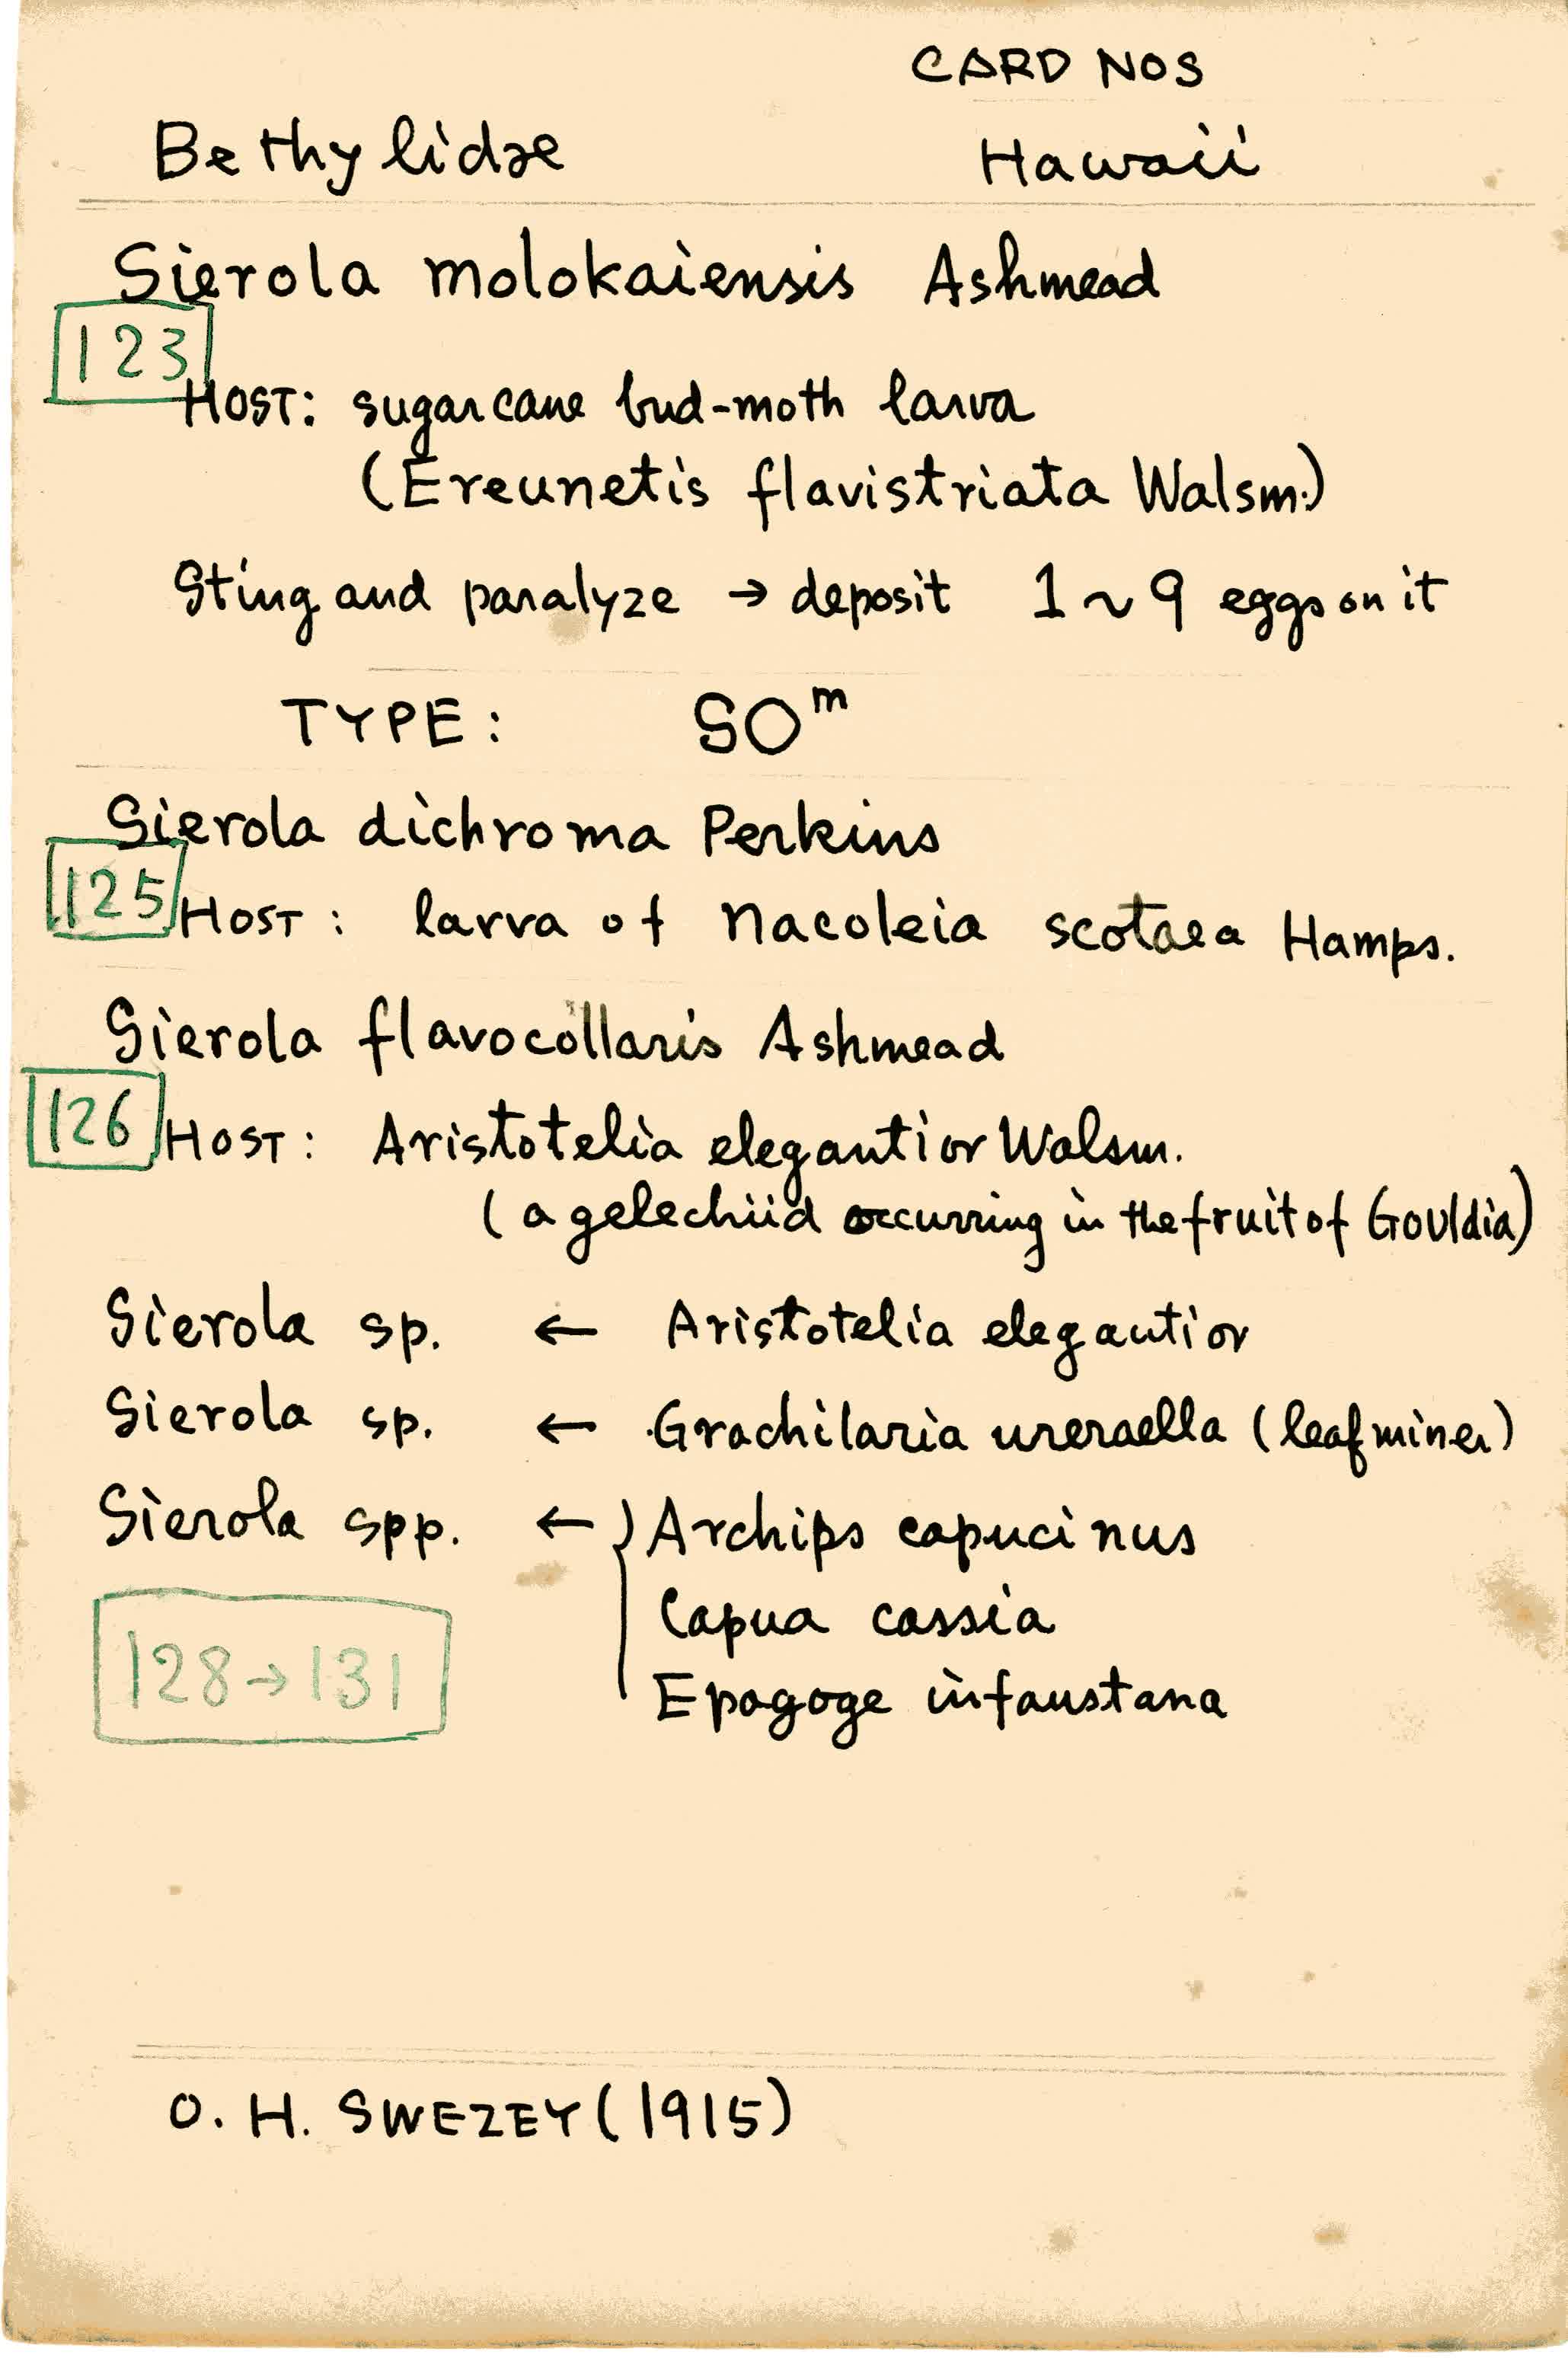 CARD NOS
Bethylidae Hawaii
Sierola molokaiensis Ashmead
123
HOST: sugarcane bud-moth larva
(Ereunetis flavistriata Walsm.)
Sting and paralyze → deposit 1~9 eggs on it
TYPE: SOᵐ
Sierola dichroma Perkins
125 HOST: larva of Nacoleia scotaea Hamps.
Sierola flavocollaris Ashmead
126 HOST: Aristotelia elegantior Walsm.
(a gelechiid occurring in the fruit of Gouldia)
Sierola sp. ← Aristotelia elegantior
Sierola sp. ← Grachilaria ureraella (leafminer)
Sierola spp. ← Archips capucinus
Capua cassia
128→131
Epagoge infaustana
O. H. SWEZEY (1915)